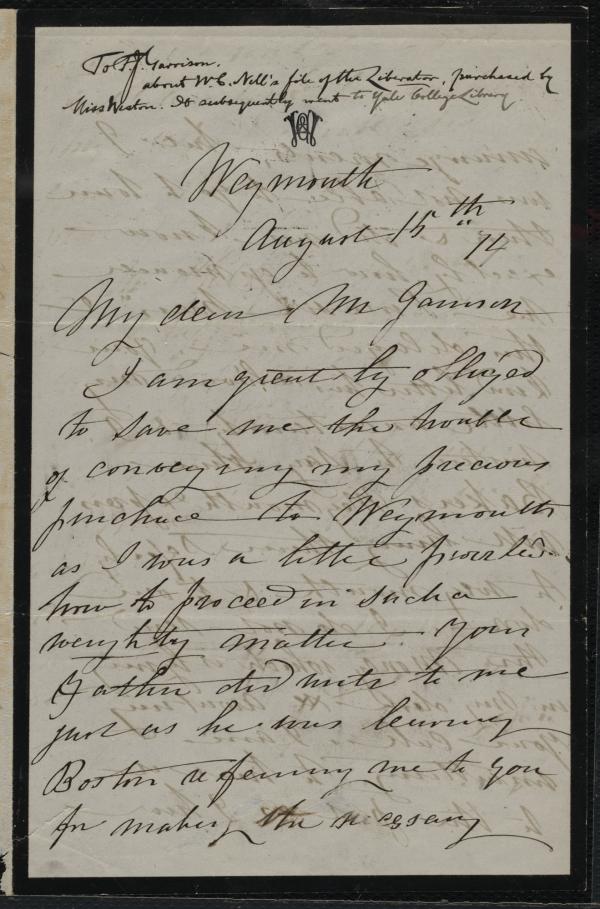 To F. J. Garrison.
about W. C. Nell's file of the Liberator, purchased by
Miss Weston. It subsequently went to Yale College Library
Weymouth
August 15th 74
My dear Mr Garrison
I am greatly obliged
to save me the trouble
of conveying my precious
purchase to Weymouth
as I was a little puzzled
how to proceed in such a
weighty matter. Your
Father did write to me
just as he was leaving
Boston referring me to you
for making the necessary